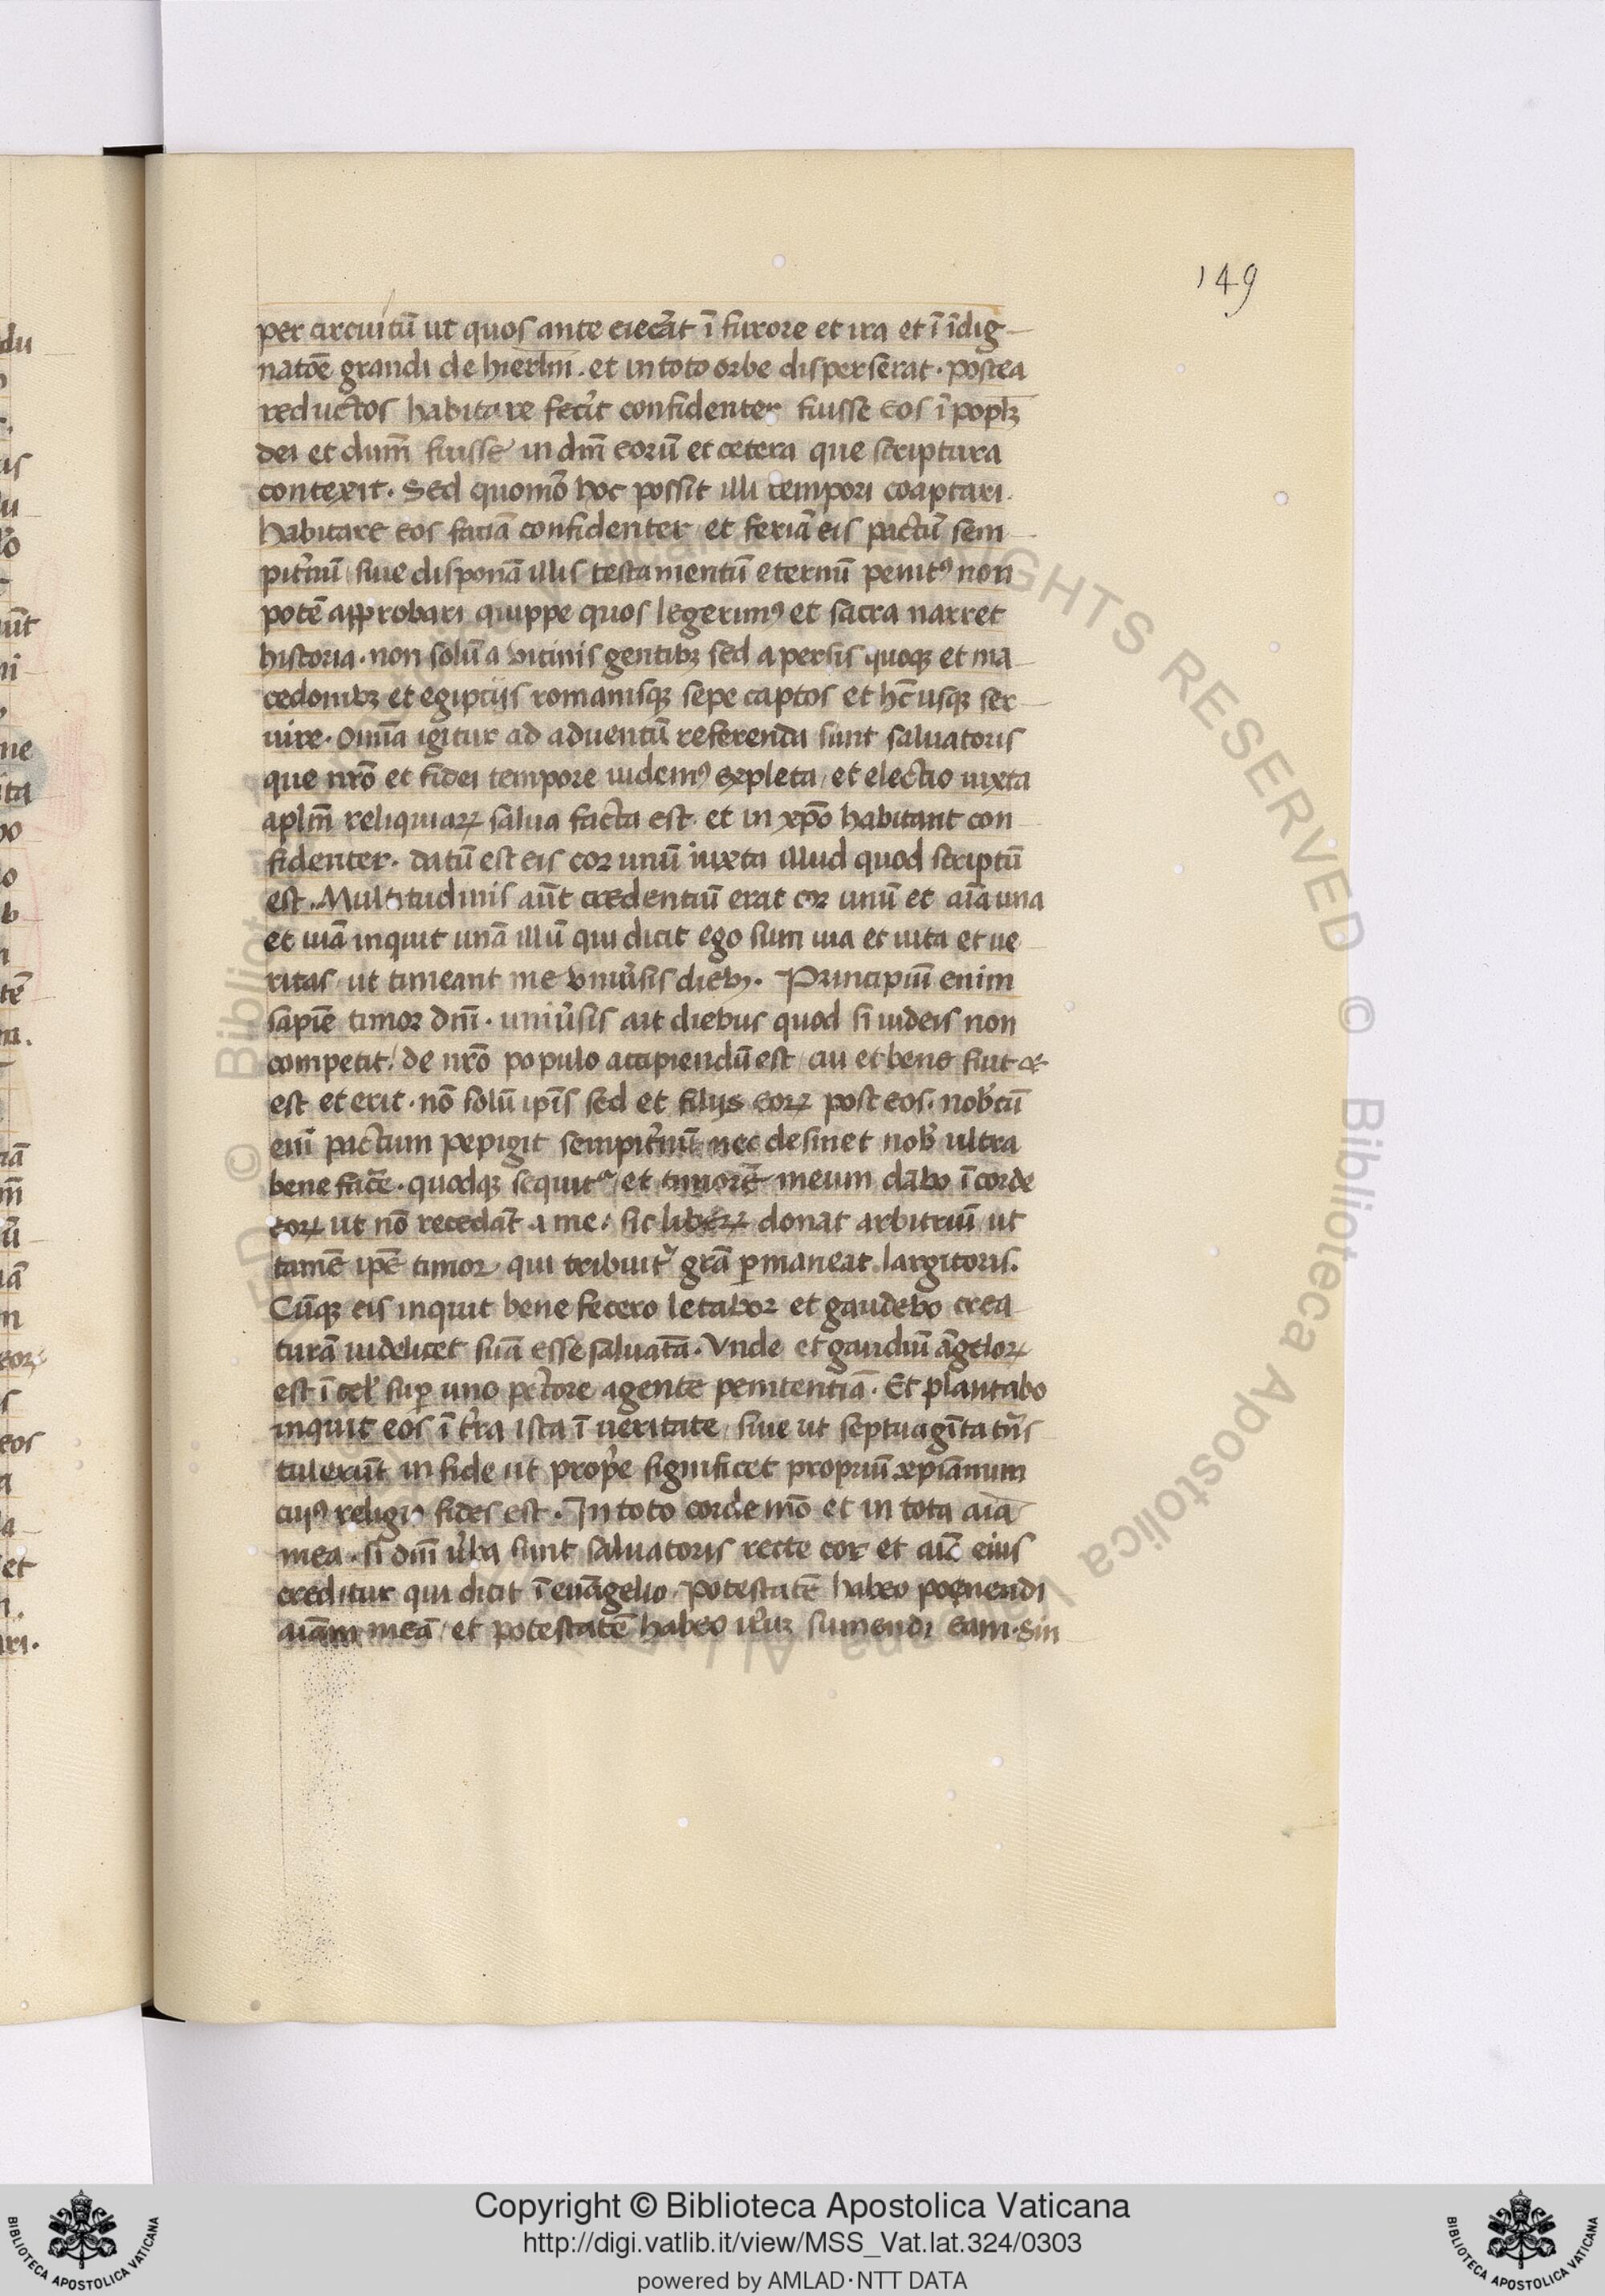 149
per circuitū ut quos ante eiec̄at ī furore et ira et ī īdig
natōe grandi de hierlm̄ . et in toto orbe disperserat . postea
reductos habitare fec̄it confidenter fuisse eos ī popl̄ꝫ
dei et dum̄ fuisse in dm̄ eorū et cetera que scriptura
contexit . Sed quomō hoc possit illi tempori coaptari .
habitare eos faciā confidenter / et feriā eis pactū sem
pit̄nū / siue disponā illis testamentū eternū penitꝰ non
potē approbari quippe quos legerimꝰ et sacra narret
historia . non solū a vicinis gentibꝫ sed a persis quoqꝫ et ma
cedonibꝫ et egiptijs romanisqꝫ sepe captos et hc̄ usqꝫ ser
uire . Om̄ia igitur ad aduentū referenda sunt saluatoris
que nr̄o et fidei tempore uidemꝰ expleta / et electio iuxta
aplm̄ reliquiaꝝ salua facta est . et in xp̄o habitant con
fidenter . datū est eis cor unū iuxta illud quod scriptū
est . Multitudinis aūt credentiū erat cor unū et aīa una
et uiā inquit unā illū qui dicit ego sum uia et uita et ue
ritas / ut timeant me vniūsis diebꝫ . Principiū enim
sapīe timor dnī . uniūsis ait diebus quod si iudeis non
competit / de nr̄o populo accipiendū est / cui et bene fuit &
est et erit . nō solū ip̄is sed et filijs eoꝝ post eos . nob̄ cū
enī pactum pepigit sempit̄nū nec desinet nob̄ ultra
bene fac̄e . quodqꝫ sequit᷑ / et timorē meum dabo ī corde
eoꝝ ut nō recedāt a me . sic libeꝝ donat arbitriū / ut
tamē ip̄e timor qui tribuit᷑ grā ꝑmaneat largitoris .
Cūqꝫ eis inquit bene fecero letabor et gaudebo crea
turā uidelicet suā esse saluatā . Vnde et gaudiū āgeloꝝ
est ī cel̄ suꝑ uno pec̄tore agente penitentiā . Et plantabo
inquit eos ī t̄ra ista ī ueritate / siue ut septuagīta tn̄s
tulerūt in fide ut prop̄e significet propriū xp̄ianum
cuiꝰ religio fides est . In toto corde mō et in tota aīa
mea . si dnī ūba sunt saluatoris recte cor et aīa eius
creditur qui dicit ī euāgelio . Potestatē habeo poenendi
aīam meā / et potestatē habeo it̄uꝫ sumendi eam . Sin
Copyright © Biblioteca Apostolica Vaticana
http://digi.vatlib.it/view/MSS_Vat.lat.324/0303
powered by AMLAD·NTT DATA